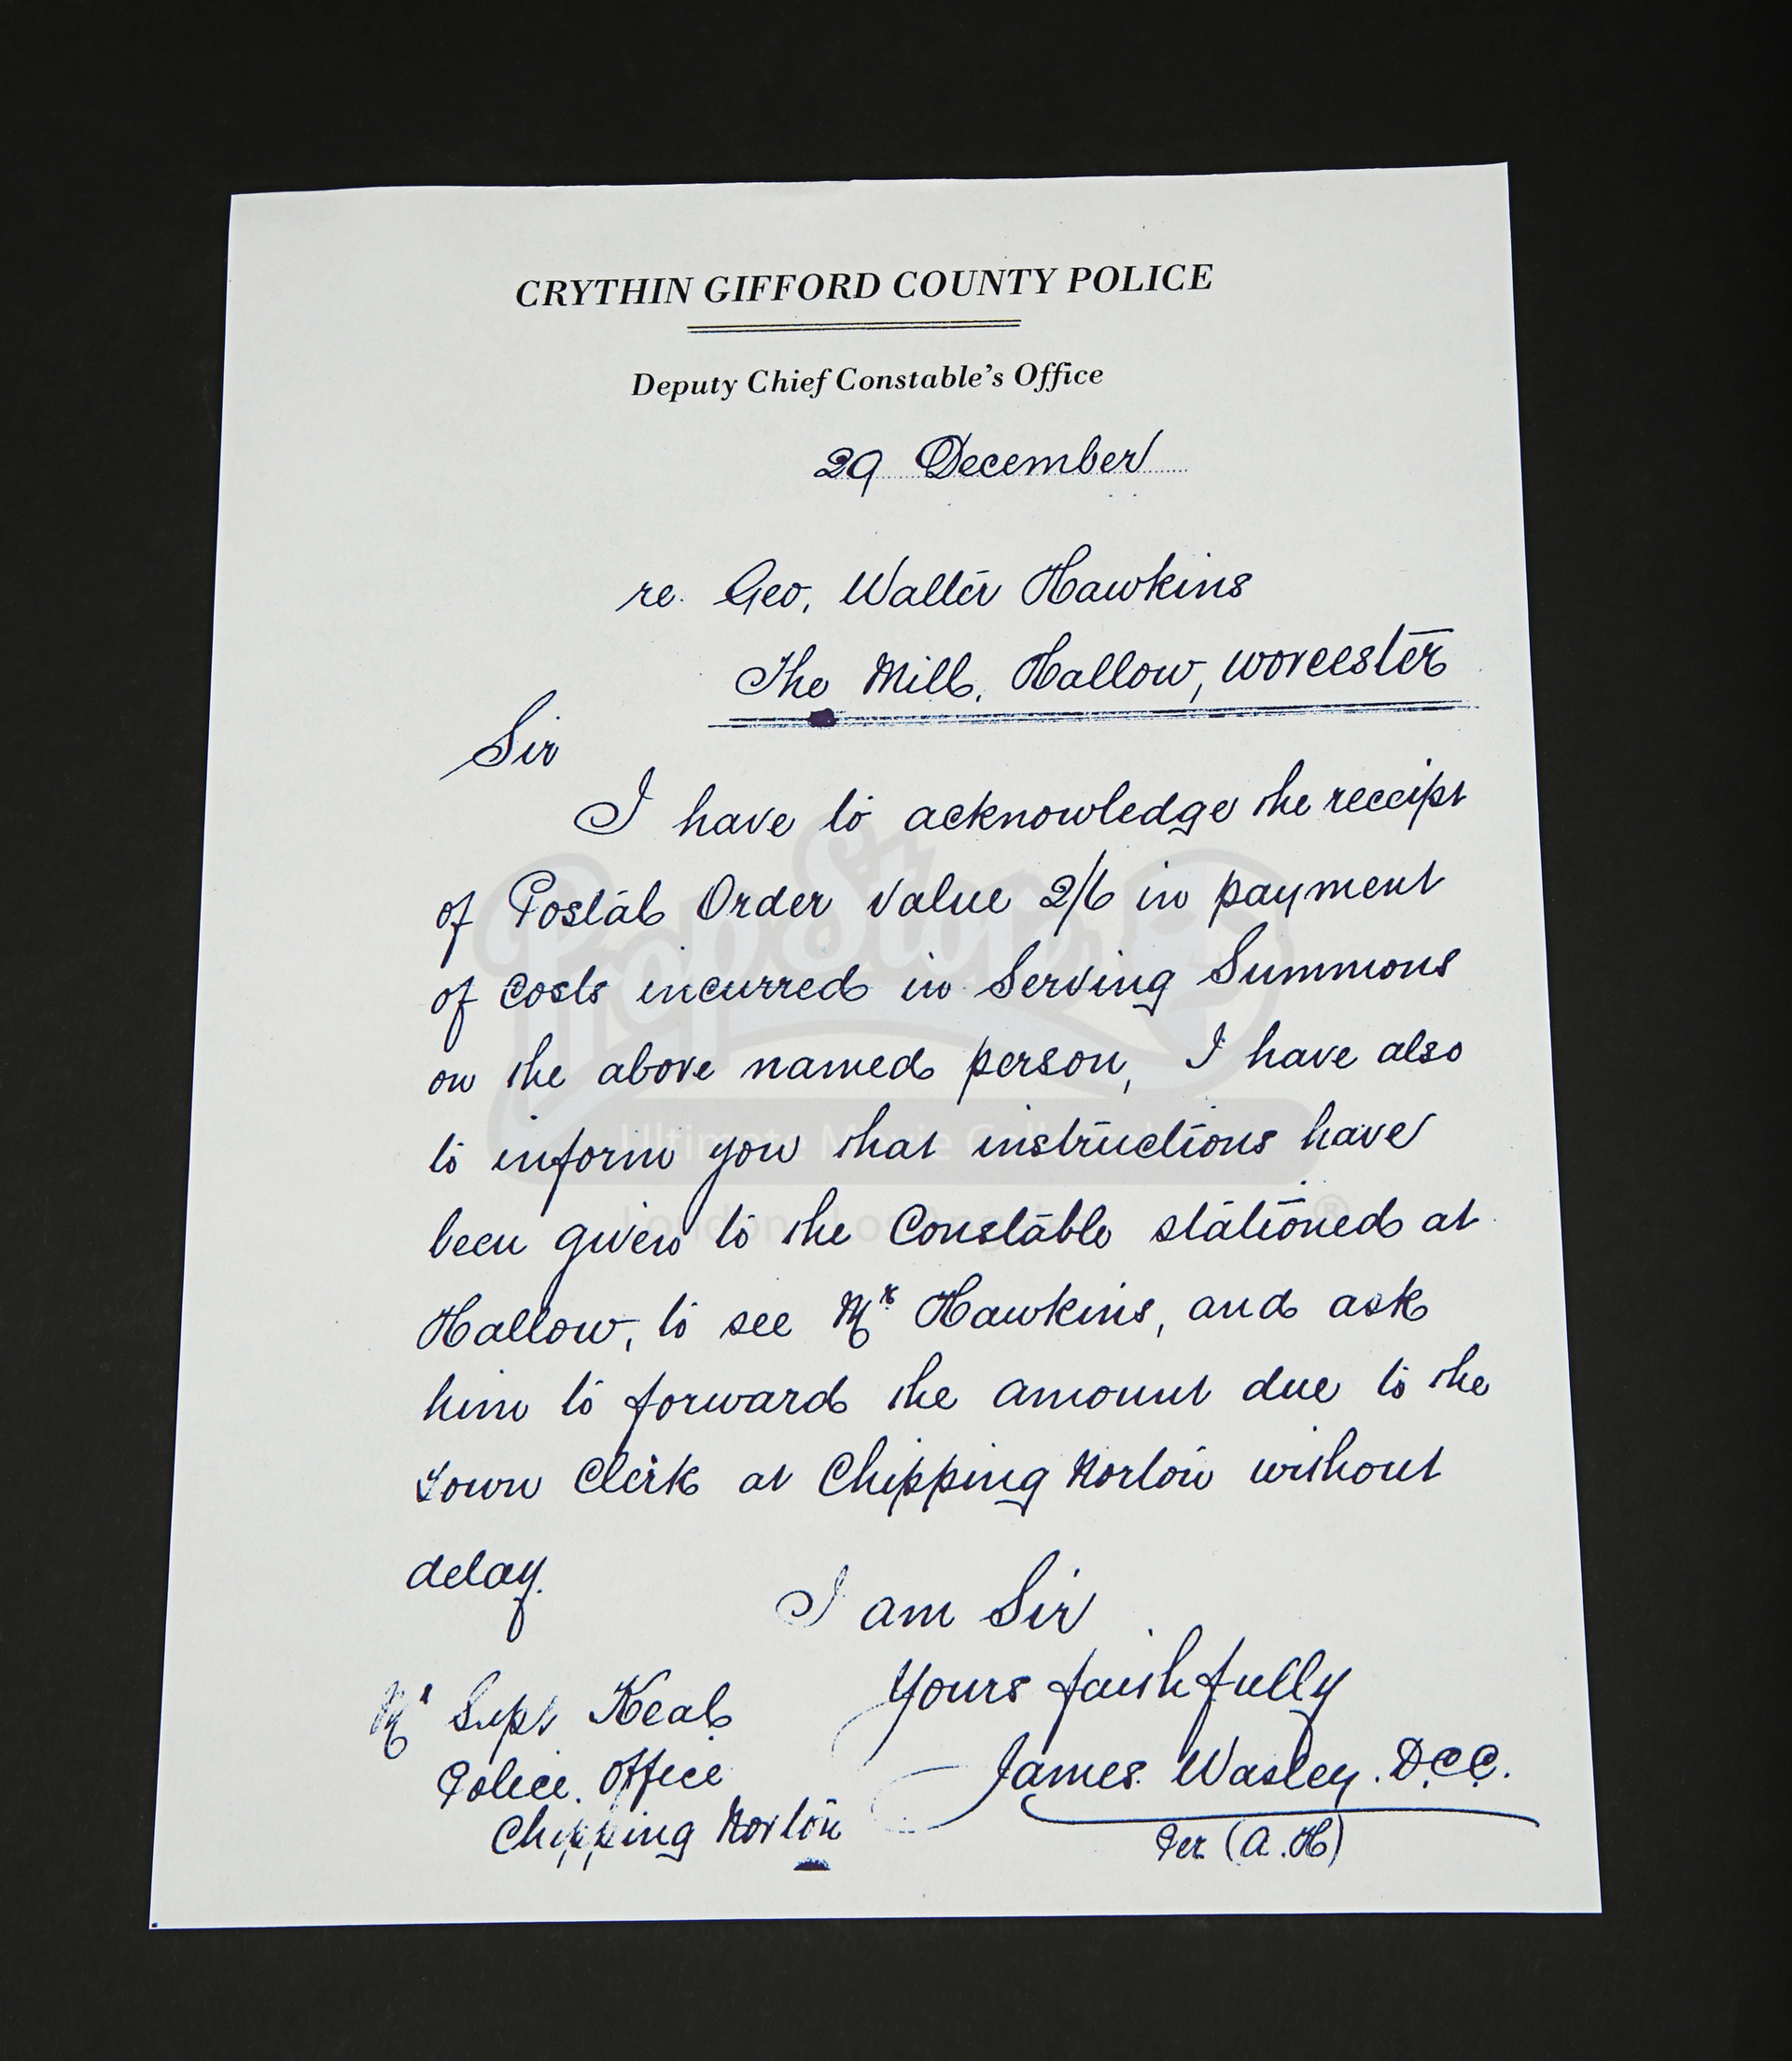 CRYTHIN GIFFORD COUNTY POLICE
Deputy Chief Constable's Office
29 December
re. Geo. Walter Hawkins
The Mill, Hallow, Worcester
Sir
I have to acknowledge the receipt
of Postal Order value 2/6 in payment
of costs incurred in Serving Summons
on the above named person, I have also
to inform you that instructions have
been given to the Constable stationed at
Hallow, to see Mr Hawkins, and ask
him to forward the amount due to the
Town Clerk at Chipping Norton without
delay.
I am Sir
Yours faithfully
James Wasley. D.C.C.
Per (A.H)
Mr Supt Keal
Police. Office
Chipping Norton
PropStore
Ultimate Movie Collectables
London Los Angeles ®